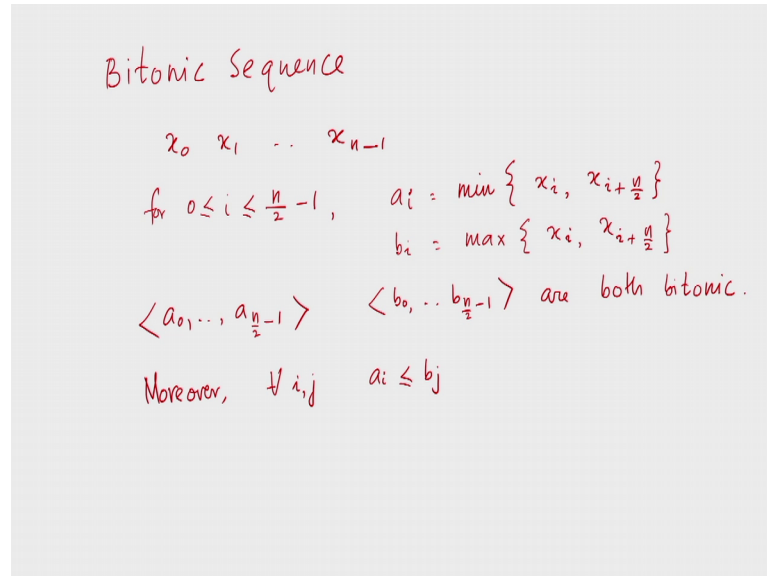 Bitonic Sequence
x₀ x₁ .. xₙ₋₁
for 0 ≤ i ≤ n/2 -1, aᵢ = min { xᵢ, x_{i+n/2} }
bᵢ = max { xᵢ, x_{i+n/2} }
<a₀, .., a_{n/2 -1}> <b₀, .. b_{n/2 -1}> are both bitonic.
Moreover, ∀ i,j aᵢ ≤ bⱼ